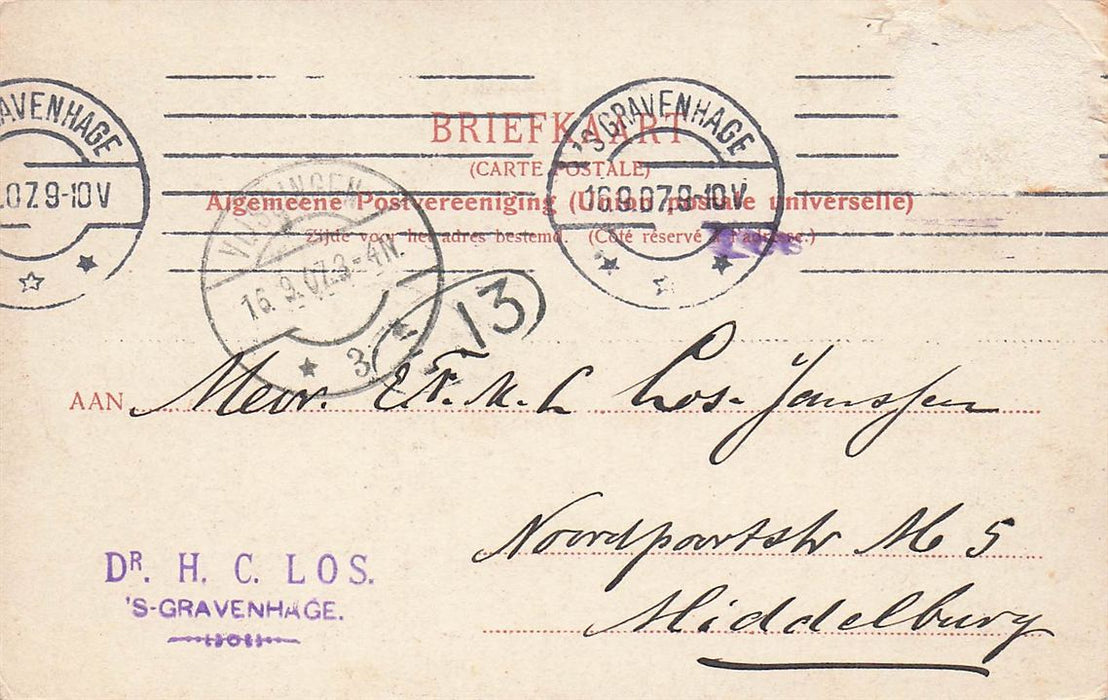 'S GRAVENHAGE
16.9.07.9-10V
AVENHAGE
.07.9-10V
BRIEFKAART
(CARTE POSTALE)
Algemeene Postvereeniging (Union postale universelle)
Zijde voor het adres bestemd. (Côté réservé à l'adresse.)
VLISSINGEN
16.9.07.3-4N.
3
13
AAN Mevr. E.F.M.C Los-Janssen
Noordpoortstr M 5
Middelburg
DR. H. C. LOS.
'S-GRAVENHAGE.